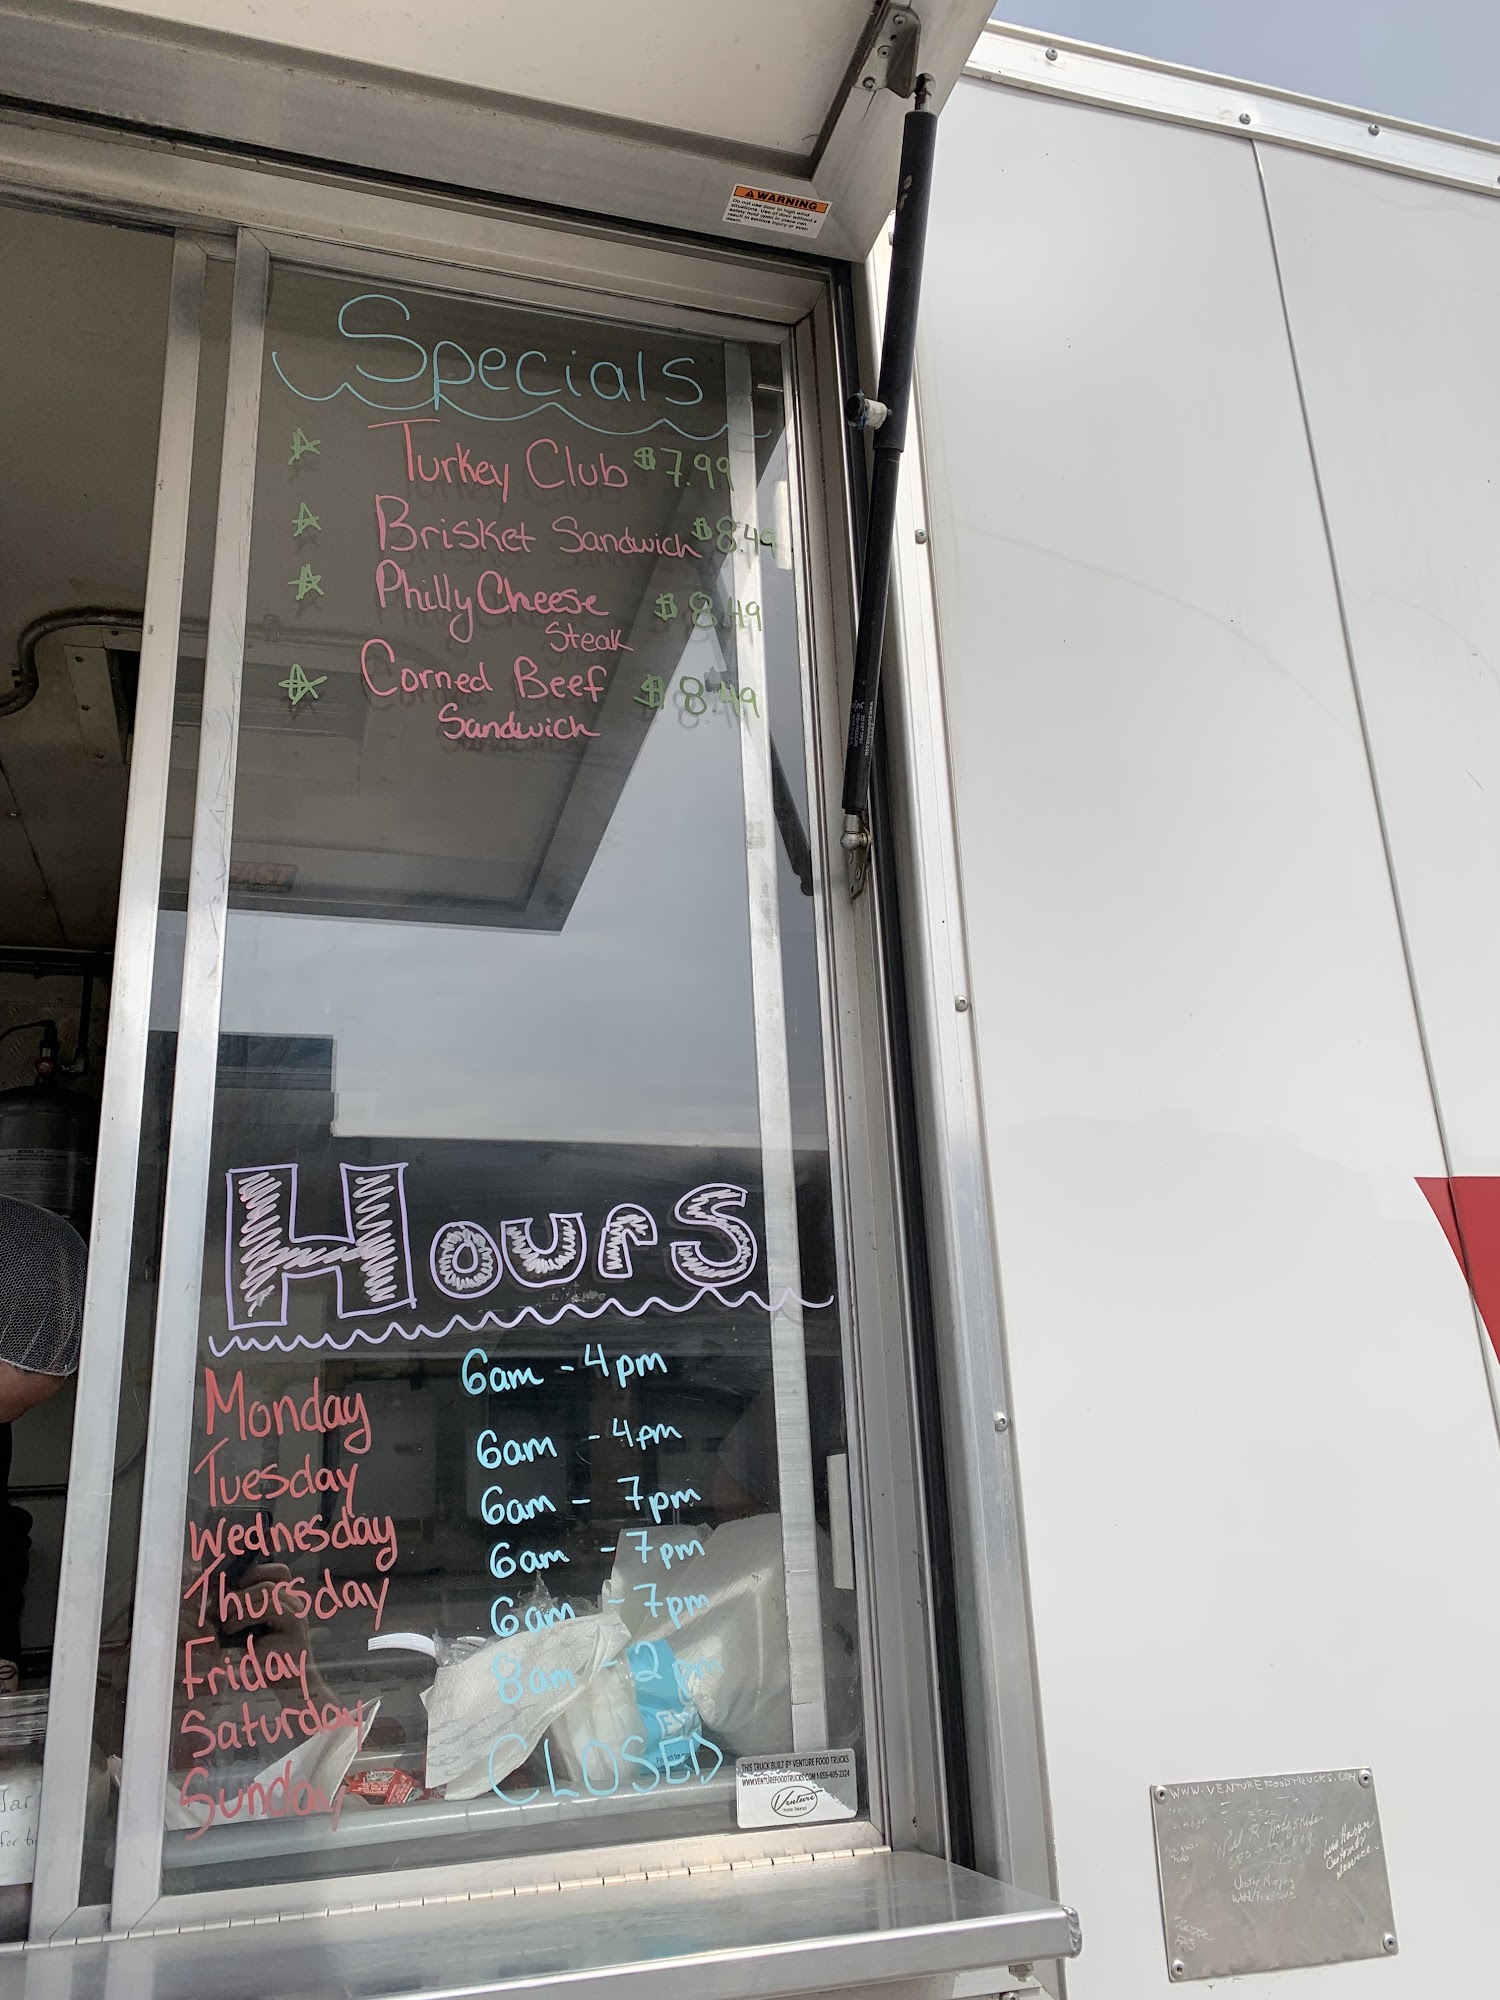 WARNING
Do not use door in high wind
situations. Use of door without a
safety bolt open in place can
result in serious injury or even
death.
Specials
Turkey Club $7.99
Brisket Sandwich $8.49
Philly Cheese $8.49
Steak
Corned Beef $8.49
Sandwich
Hours
Monday 6am - 4pm
Tuesday 6am - 4pm
Wednesday 6am - 7pm
Thursday 6am - 7pm
Friday 6am - 7pm
Saturday 8am - 2pm
Sunday CLOSED
THIS TRUCK BUILT BY VENTURE FOOD TRUCKS
WWW.VENTUREFOODTRUCKS.COM 1-855-605-2324
Venture
FOOD TRUCKS
WWW.VENTUREFOODTRUCKS.COM
CEO
Customer
Service
Victor Murphy
Jar
for